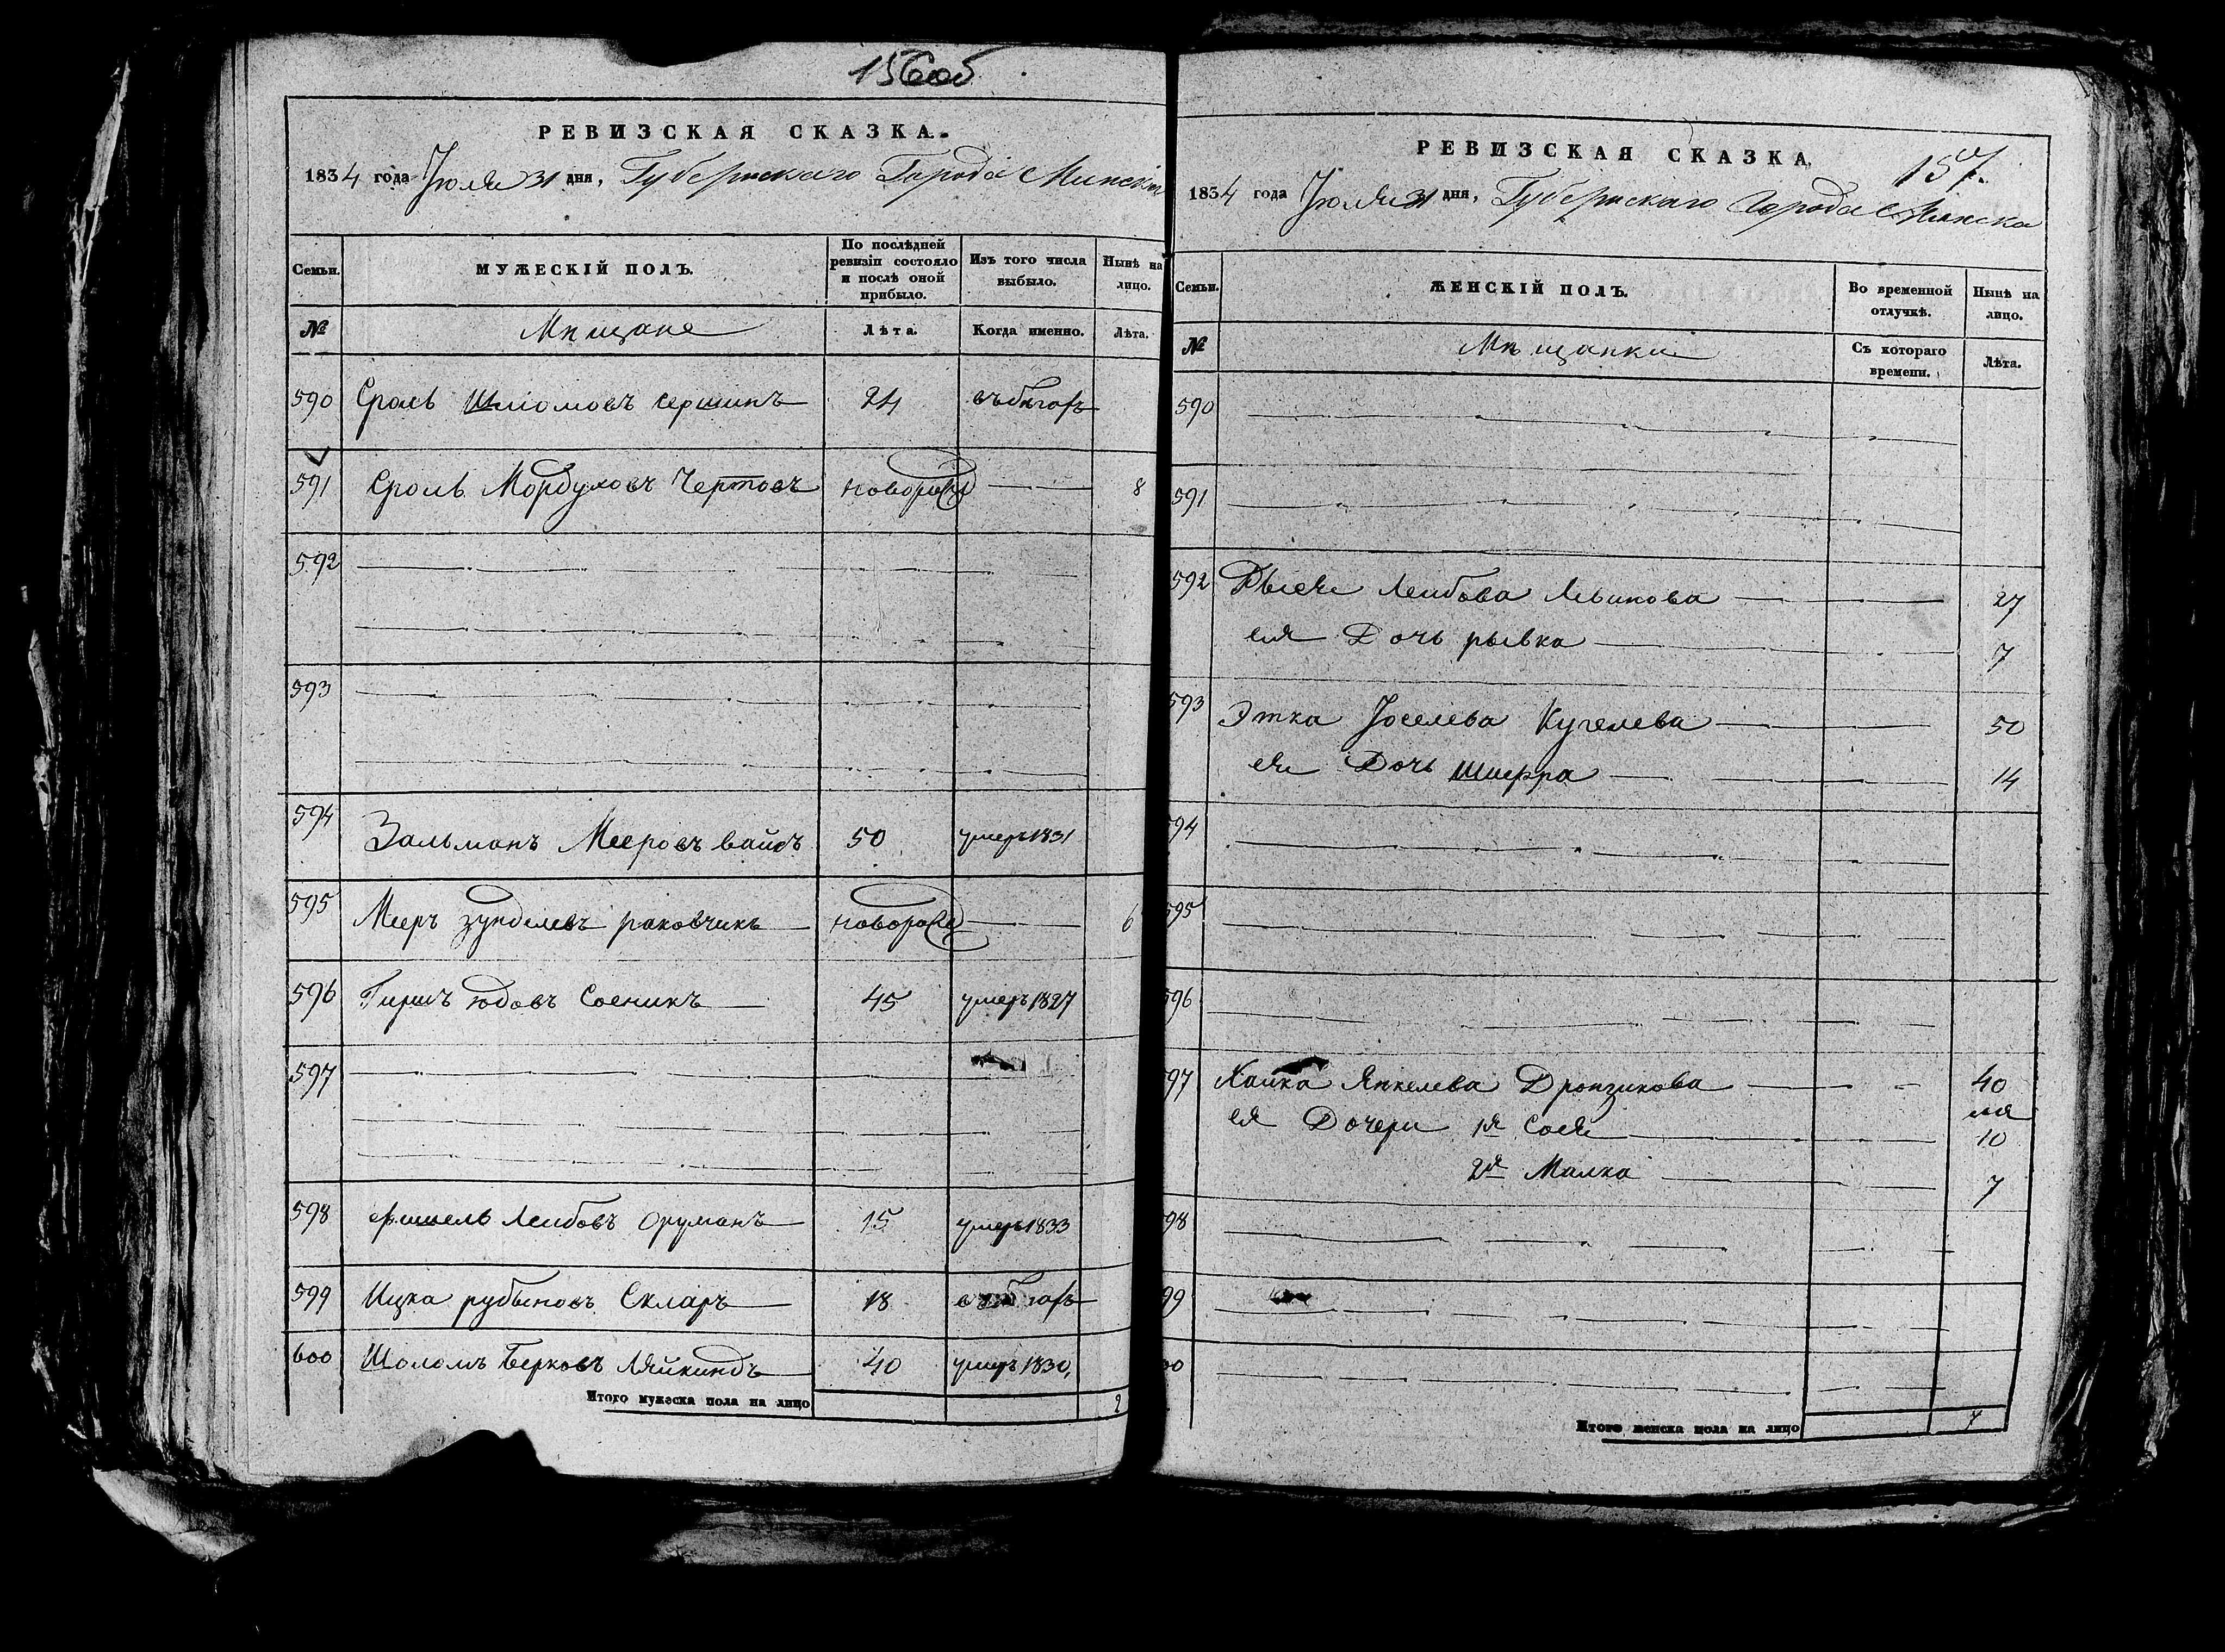 156 об
РЕВИЗСКАЯ СКАЗКА.
1834 года Июля 31 дня, Губернскаго Города Минска
Семьи.
МУЖЕСКІЙ ПОЛЪ.
По послѣдней ревизіи состояло и послѣ оной прибыло.
Изъ того числа выбыло.
Нынѣ на лицо.
№
Мѣщане
Лѣта.
Когда именно.
Лѣта.
590 Сроль Шліомовъ 24 въ бѣгахъ
591 Сроль Мордуховъ Чертовъ новорож 8
592
593
594 Зальманъ Мееровъ вайсъ 50 умеръ 1831
595 Мееръ зунделевъ раковчикъ новорож 6
596 Гиршъ юдовъ Соеникъ 45 умеръ 1827
597
598 Лейбовъ 15 умеръ 1833
599 Ицка рубѣновъ Скларъ 18 въ бѣгахъ
600 Шоломъ Берковъ Ляйкиндъ 40 умеръ 1830,
Итого мужеска пола на лицо 2
157.
РЕВИЗСКАЯ СКАЗКА,
1834 года Июля 31 дня, Губернскаго Города Минска
Семьи.
ЖЕНСКІЙ ПОЛЪ.
Во временной отлучкѣ.
Нынѣ на лицо.
№
Мѣщанки
Съ котораго времени.
Лѣта.
590
591
592 Лейбова 27
ея Дочь рывка 7
593 Этка Іоселева Кугелева 50
ея Дочь Шифра 14
94
595
96
97 Хайка Янкелева Дронзикова 40
ея Дочери 1я Сося 10
2я Малка 7
98
99
00
Итого женска пола на лицо 7